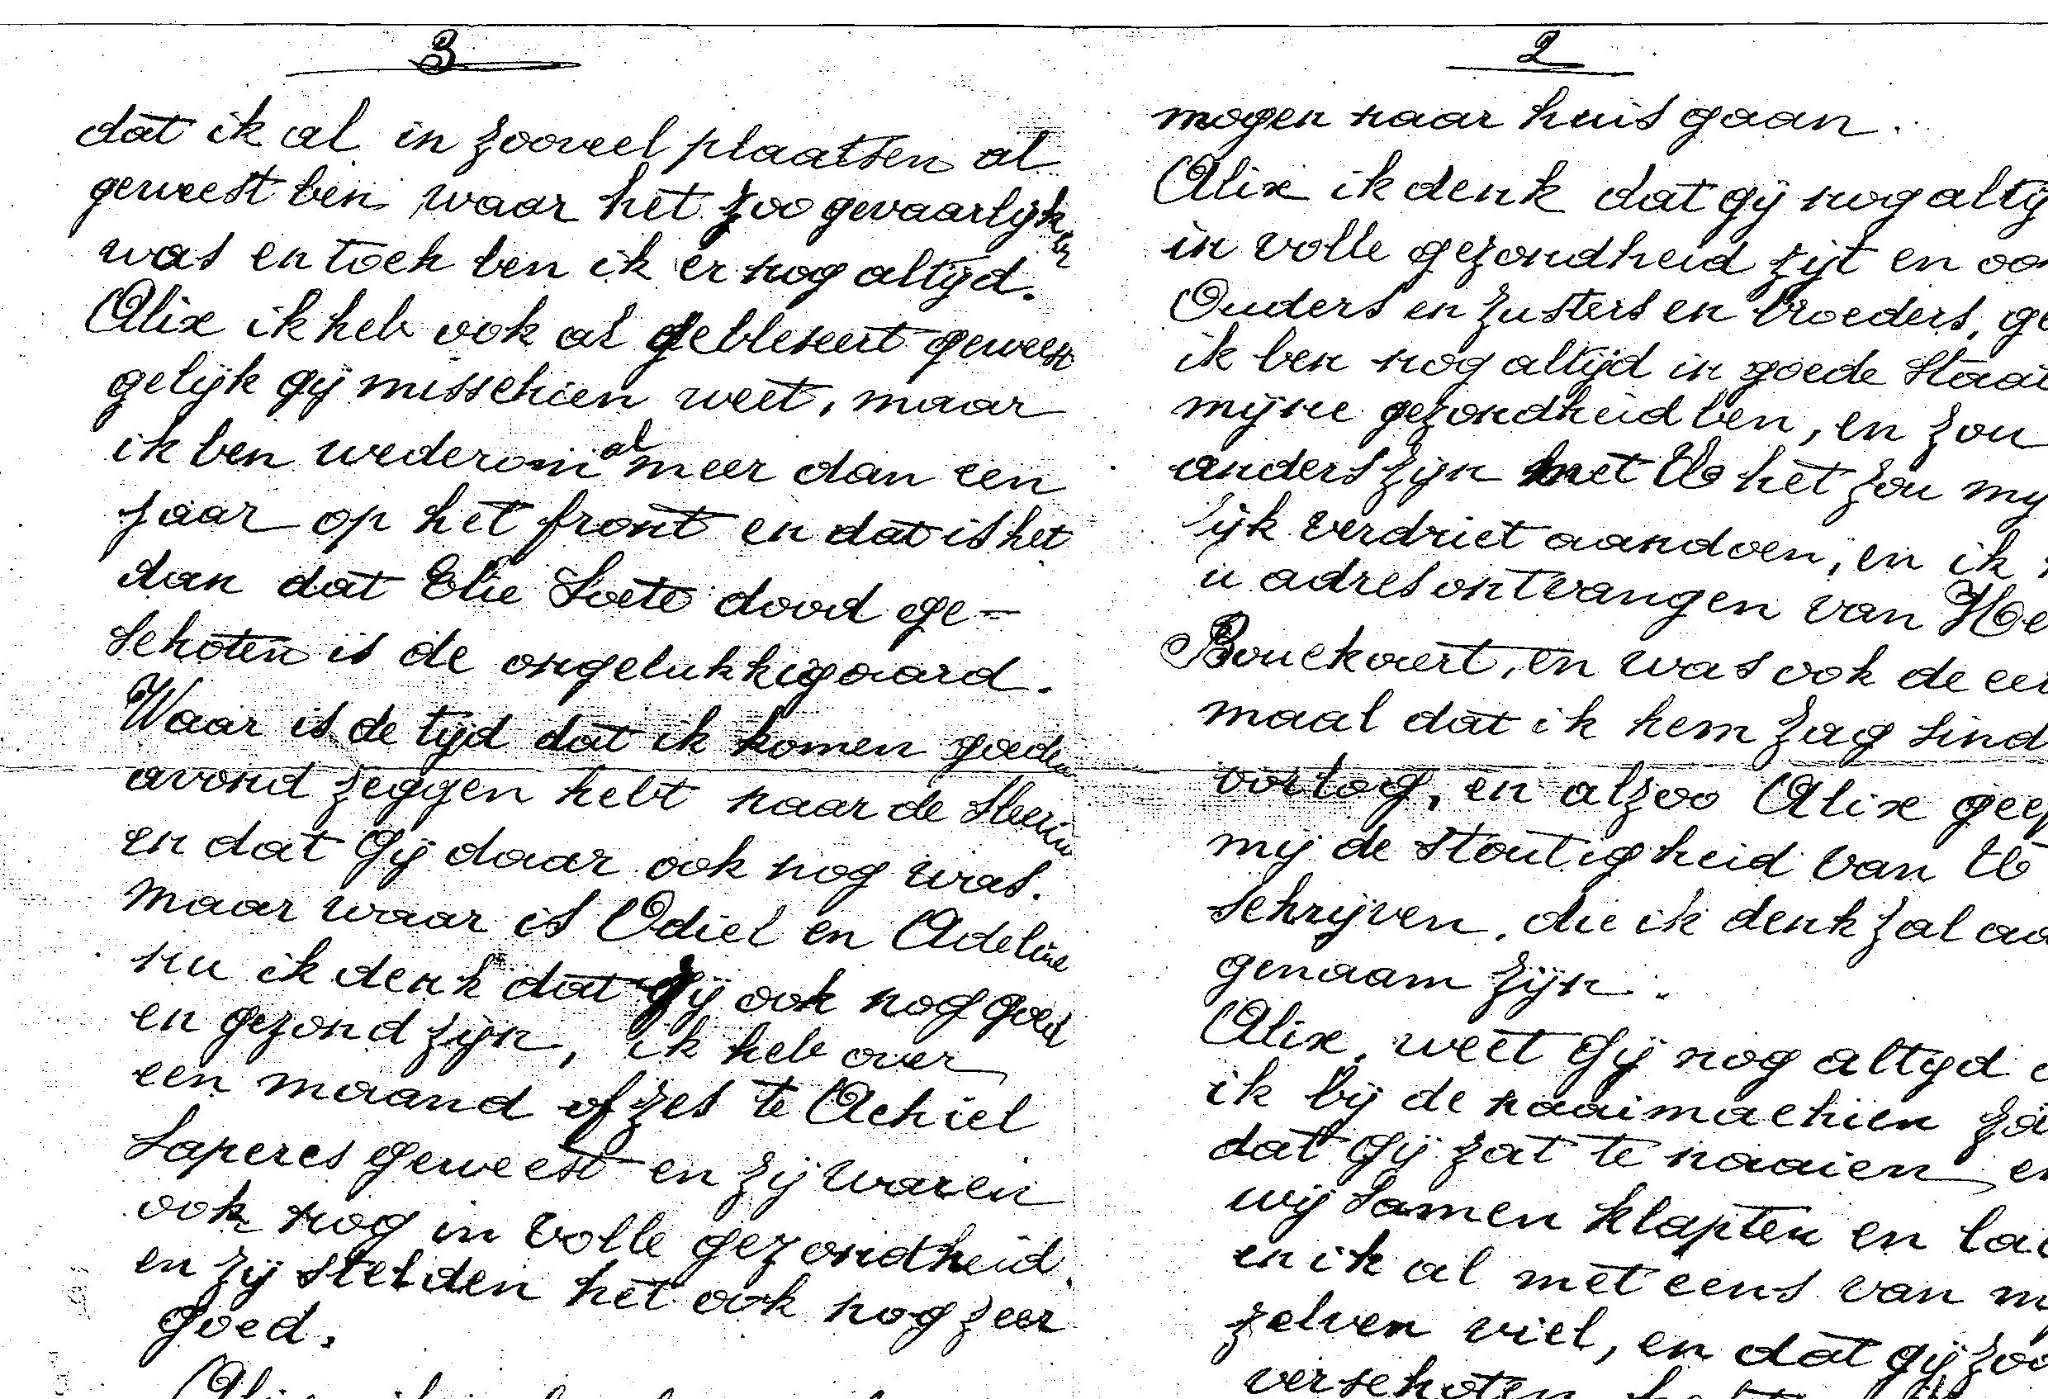 3
dat ik al in zooveel plaatsen al
geweest ben waar het zoo gevaarlijk
was en toch ben ik er nog altijd.
Alix ik heb ook al geblesseert geweest
gelijk gij misschien weet, maar
ik ben wederom al meer dan een
jaar op het front en dat is het
dan dat Elie Soete dood ge-
schoten is de ongelukkigaard.
Waar is de tijd dat ik komen goeden
avond zeggen hebt naar de
en dat gij daar ook nog was.
maar waar is Odiel en Adeline
nu ik denk dat gij ook nog goed
en gezond zijn, ik heb over
een maand of zes te Achiel
Laperes geweest en zij waren
ook nog in volle gezondheid.
en zij stelden het ook nog zeer
goed.
2
mogen naar huis gaan.
Alix ik denk dat gij nog altij
in volle gezondheid zijt en oo
Ouders en zusters en broeders, ge
ik ben nog altijd in goede staat
mijne gezondheid ben, en zou
anders zijn met U het zou mij
lijk verdriet aandoen, en ik
u adres ontvangen van He
Bouckaert, en was ook de eer
maal dat ik hem zag sind
oorlog, en alzoo Alix geef
mij de stoutigheid van U
schrijven, die ik denk zal aa
genaam zijn.
Alix, weet gij nog altijd
ik bij de naaimachien za
dat gij zat te naaien en
wij samen klapten en lac
en ik al met eens van m
zelven viel, en dat gij zoo
verschoten